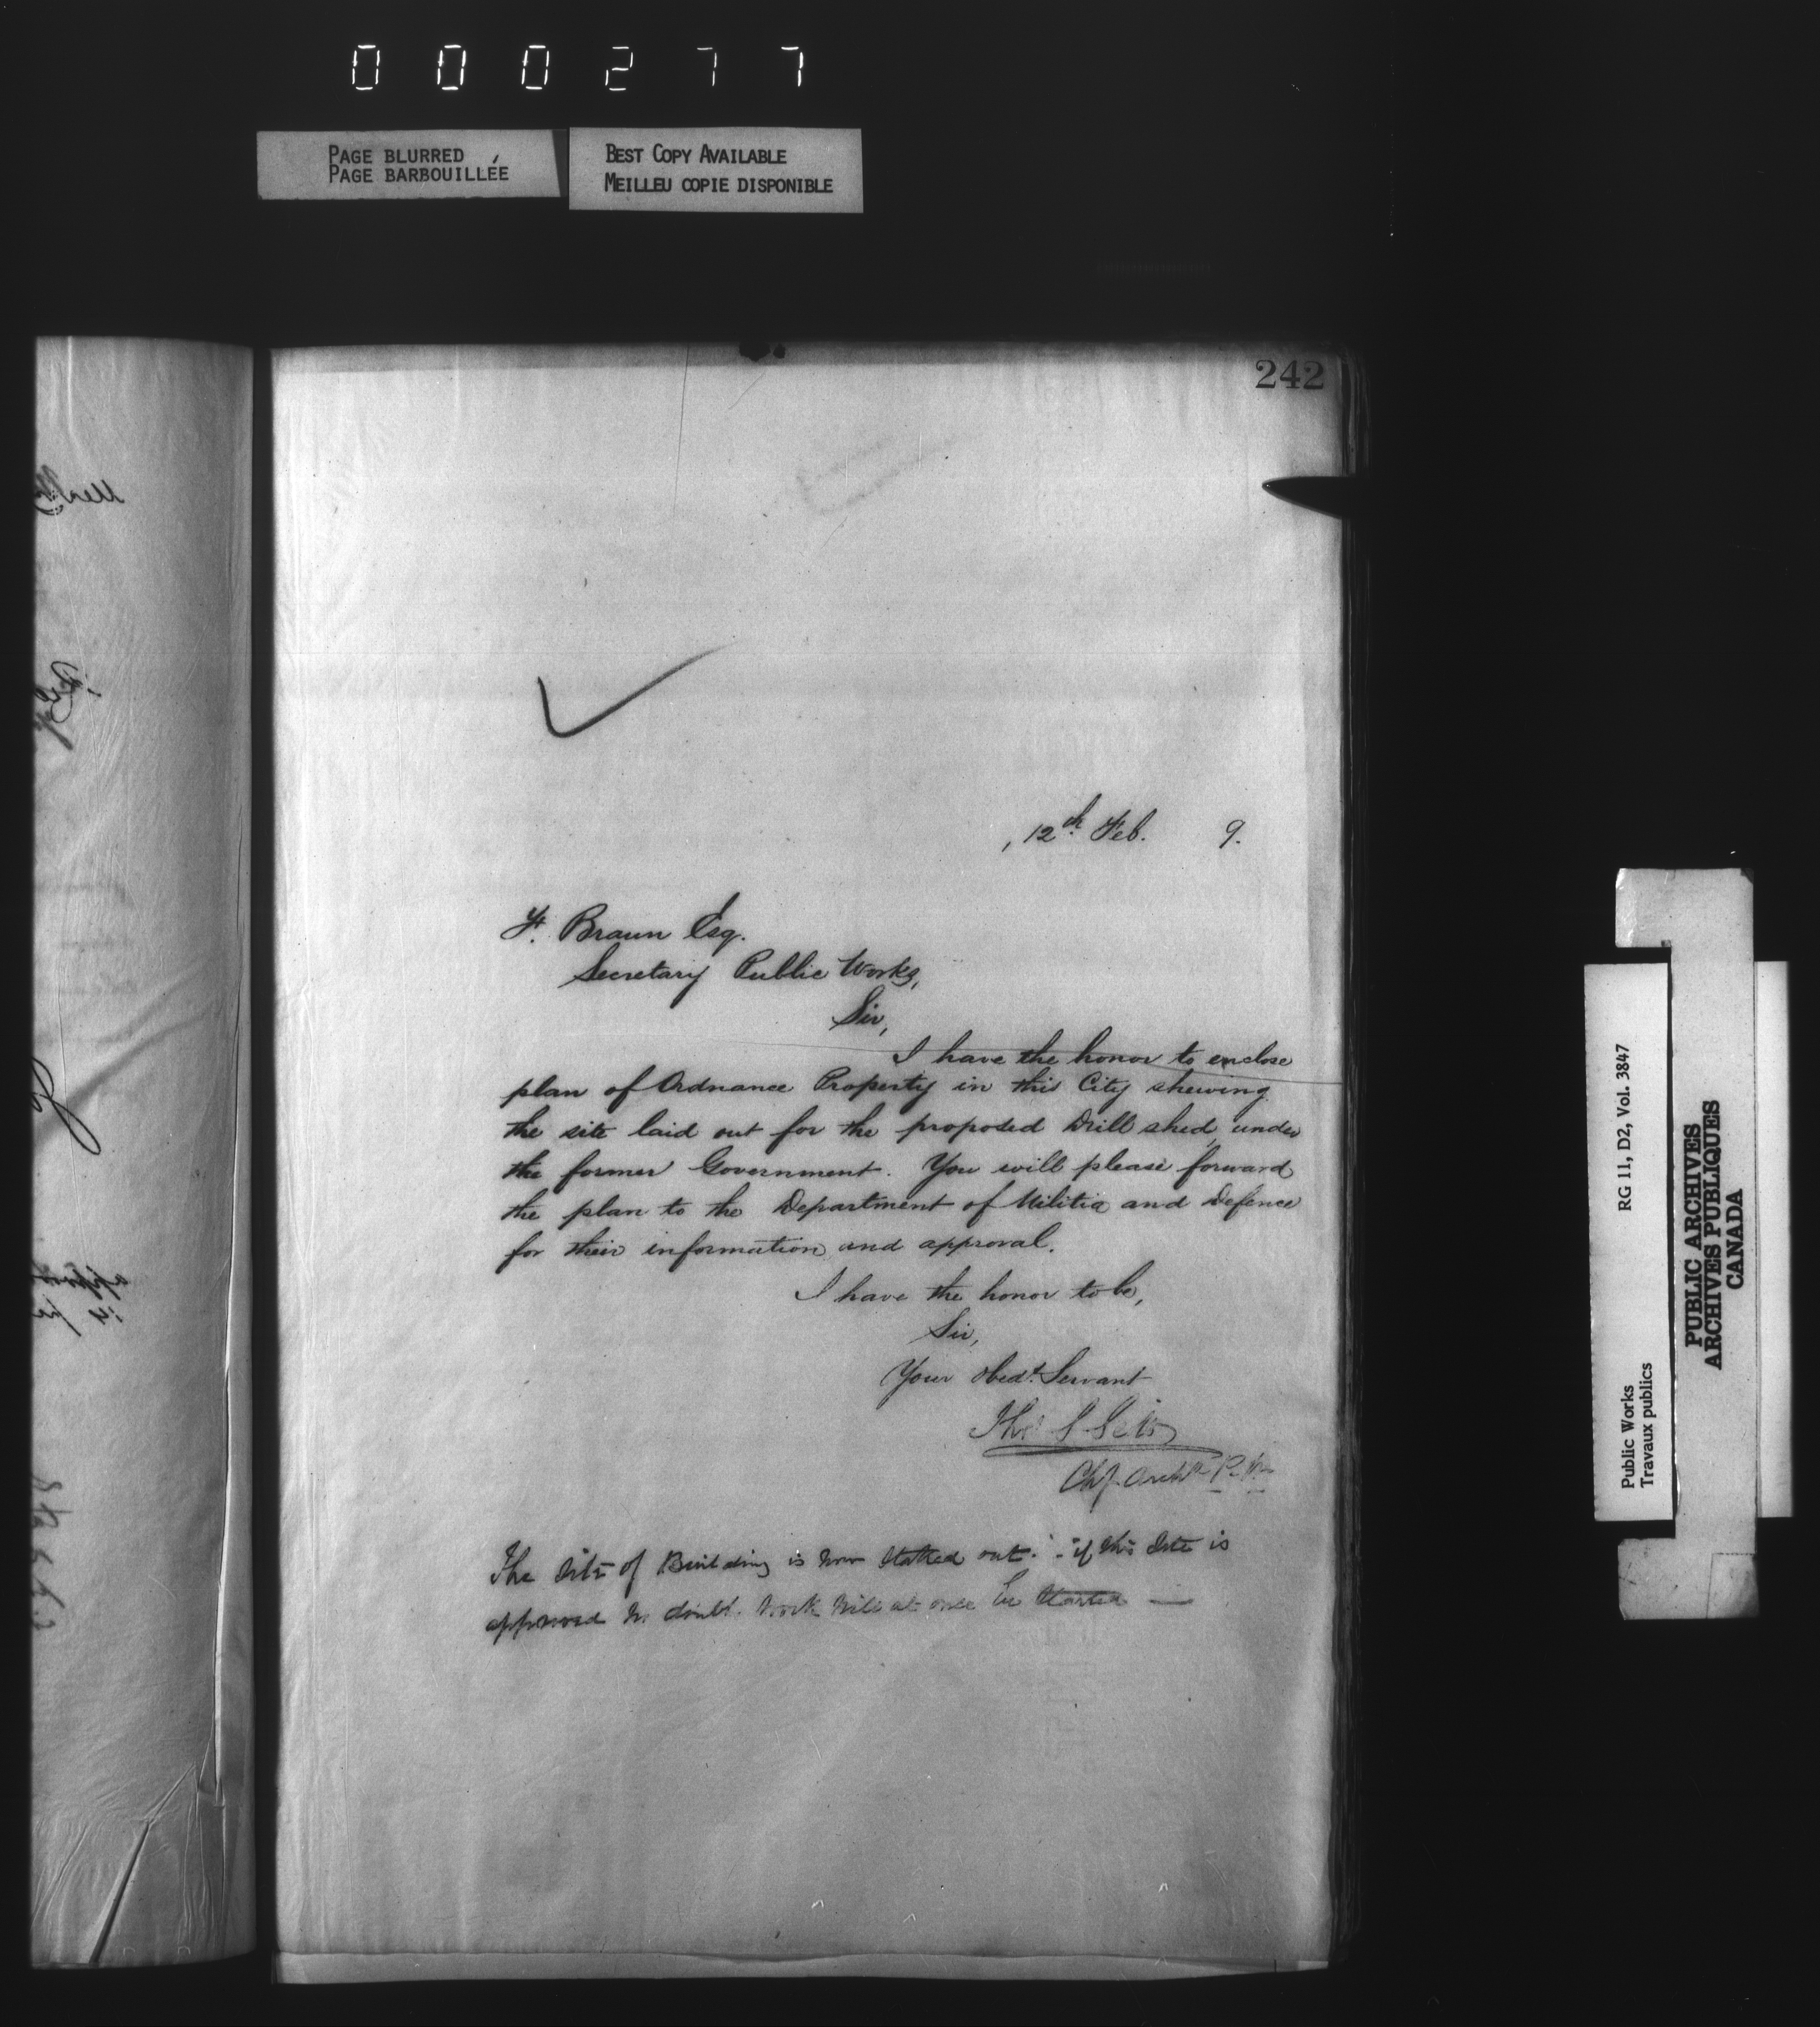 000277
PAGE BLURRED
PAGE BARBOUILLÉE
BEST COPY AVAILABLE
MEILLEU COPIE DISPONIBLE
242
, 12th Feb. 9.
F. Braun Esq.
Secretary Public Works,
Sir,
I have the honor to enclose
plan of Ordnance Property in this City shewing
the site laid out for the proposed Drill shed, under
the former Government. You will please forward
the plan to the Department of Militia and Defence
for their information and approval.
I have the honor to be,
Sir,
Your obedt. Servant
Thos S Scott
Chf. Archt P. W.
The Site of Building is now Staked out. - if this Site is
approved no doubt work will at once be Started —
Public Works
Travaux publics
RG 11, D2, Vol. 3847
PUBLIC ARCHIVES
ARCHIVES PUBLIQUES
CANADA